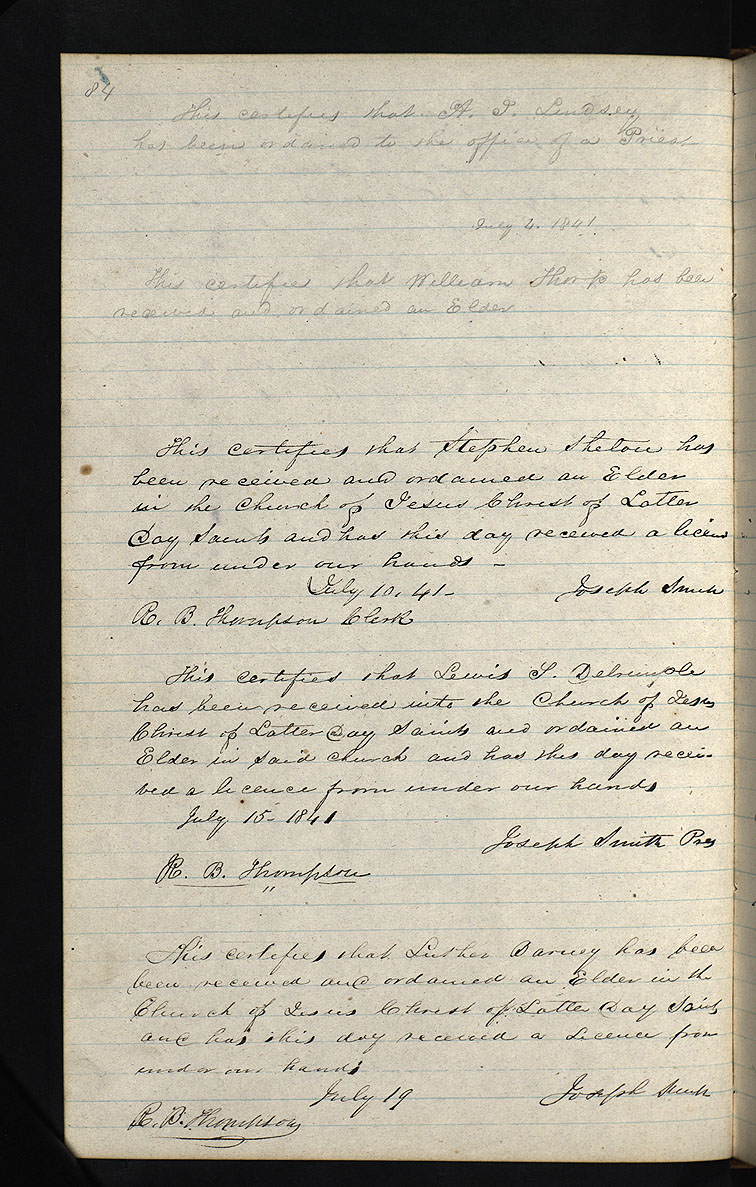 84
This certifies that A. T. Lindsey
has been ordained to the office of a Priest
July 2. 1841.
This certifies that William Thorp has been
received and ordained an Elder
This certifies that Stephen Shelton has
been received and ordained an Elder
in the Church of Jesus Christ of Latter
Day Saints and has this day received a licence
from under our hands -
July 10. 41- Joseph Smith
R. B. Thompson Clerk
This certifies that Lewis S. Delrimple
has been received into the Church of Jesus
Christ of Latter Day Saints and ordained an
Elder in said church and has this day recei-
ved a licence from under our hands
July 15- 1841
Joseph Smith Pres
R. B. Thompson
This certifies that Luther Barney has been
been received and ordained an Elder in the
Church of Jesus Christ of Latter Day Saints
and has this day received a Licence from
under our hands
July 19 Joseph Smith
R. B. Thompson